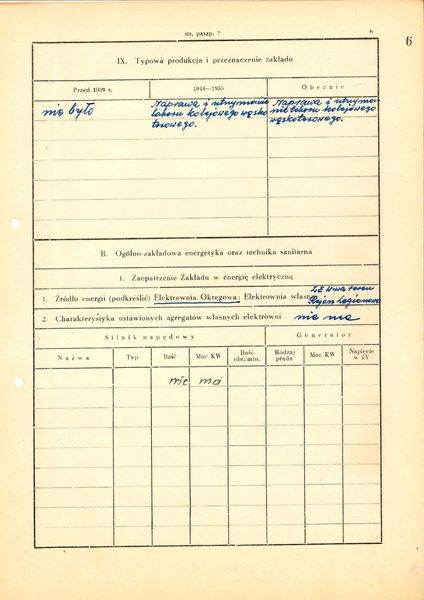 str. paszp. 7
6
IX. Typowa produkcja i przeznaczenie zakładu
Przed 1939 r. 1944—1955 Obecnie
nie było Naprawa i utrzymanie Naprawa i utrzyma-
taboru kolejowego wąsko nie taboru kolejowego
torowego. wąskotorowego.
B. Ogólno-zakładowa energetyka oraz technika sanitarna
1. Zaopatrzenie Zakładu w energię elektryczną
1. Źródło energii (podkreślić) Elektrownia Okręgowa; Elektrownia własna
Rejon Legionowo
2. Charakterystyka ustawionych agregatów własnych elektrowni nie ma
Silnik napędowy Generator
Nazwa Typ Ilość Moc KW Ilość obr./min. Rodzaj prądu Moc KW Napięcie w kV
nie ma